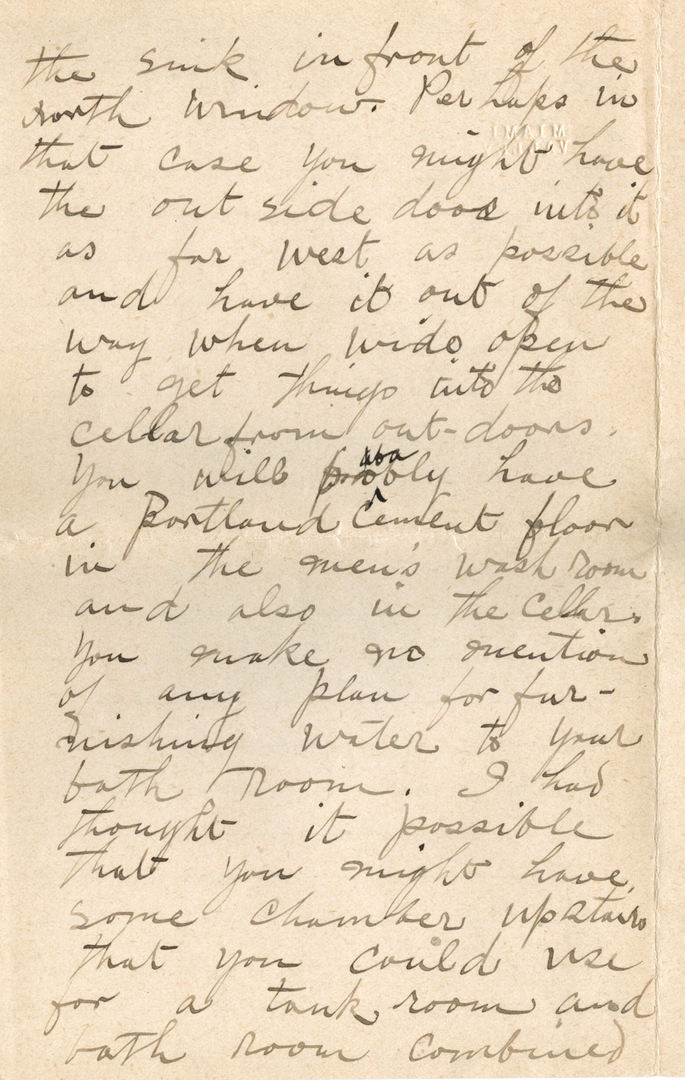 the sink in front of the
north window. Perhaps in
that case you might have
the out side door into it
as far west as possible
and have it out of the
way when wide open
to get things into the
cellar from out-doors.
You will probably have
a Portland cement floor
in the men's wash room
and also in the cellar.
You make no mention
of any plan for fur-
nishing water to your
bath room. I had
thought it possible
that you might have
some chamber upstairs
that you could use
for a tank room and
bath room combined